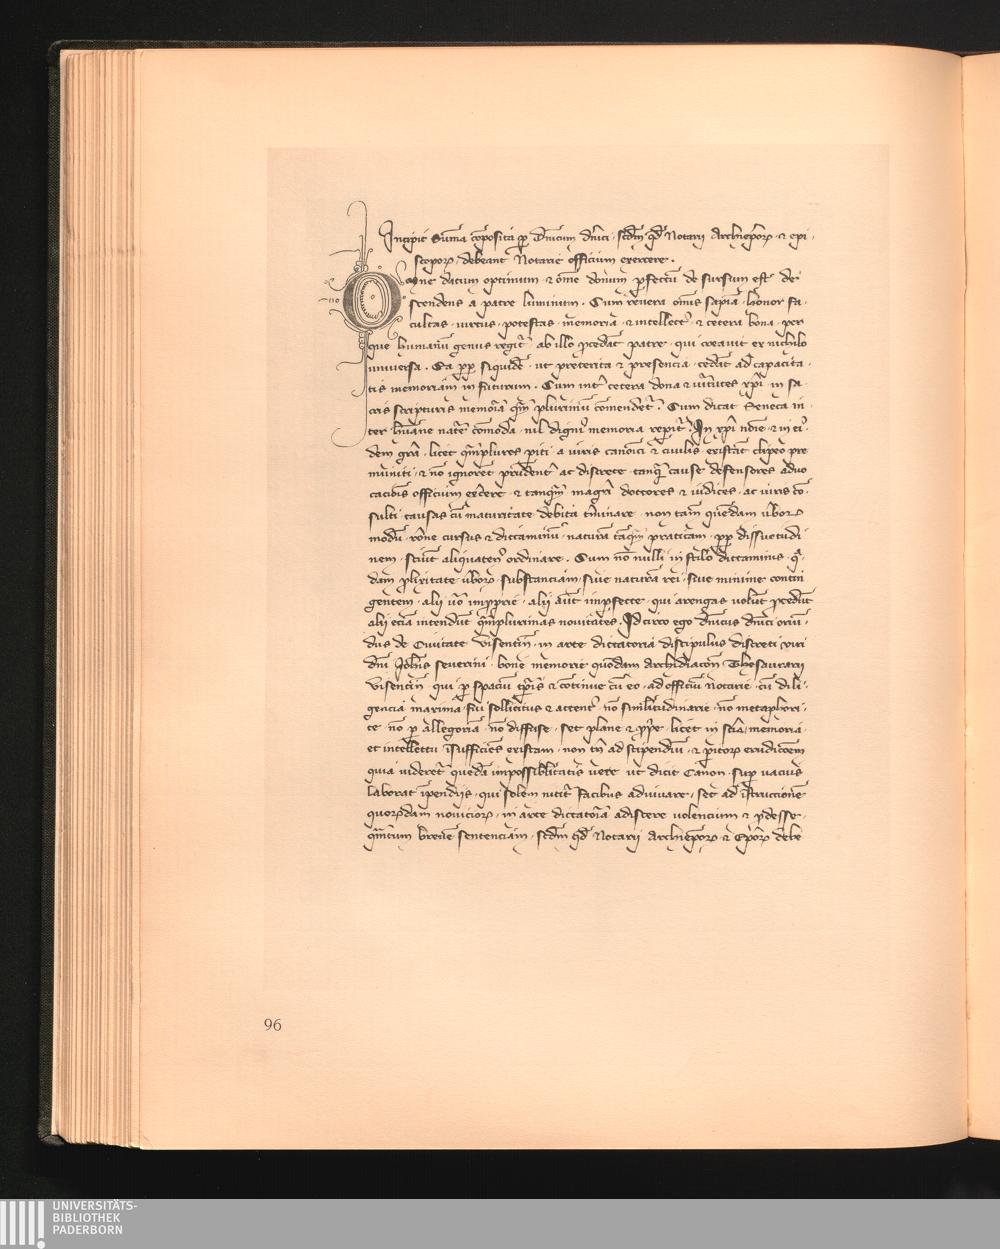 Incipit Suma composita p Dnicum dnici . scdm qd Notarij Archiepoꝝ ⁊ epi.
scopoꝝ . debeant Notarie officium exercere .
Omne datum optimum ⁊ ome donum pfectum de sursum est de
scendens a patre luminum . Cum revera omis sapia . honor fa.
cultas . virtus . potestas . memoria . ⁊ intellect . ⁊ cetera bona . per
que humanu genus regit . ab illo pcedat patre . qui creavit ex nichilo
universa . Ea pp siquide . ut preterita ⁊ presencia . cedat ad capacita.
tis memoriam in futurum . Cum int cetera dona ⁊ vtutes xpi . in sa.
cris scripturis memoria qm plurimu comendet . Cum dicat Seneca in.
ter humane nate comoda . nil digni memoria repit . In xpi noie . ⁊ in ei.
dem gra . licet qmplures piti . a viris canonici ⁊ civilis . existat clipeo pre
muniti . ⁊ no ignoret prudent ac discrete . tanq cause defensores advo
cacois officium excere . ⁊ tanqm magri doctores ⁊ iudices . ac viris co.
sulti . causas cu maturitate debita tminare . non tam quedam vboꝝ
modu . rone cursus ⁊ dictaminu . natura taqm praticam . pp dissuetudi
nem . sciut aliquaten ordinare . Cum no nulli in stilo dictaminis . q.
dam plixitate vboꝝ . substanciam . sive natura rei . sive minime contin
gentem . alij vo impprie . alij aut impfecte . qui arengas volut pcedut
alij ecia intendut qmplurimas novitates . Id circo ego dnicus dnici oriu.
dus de Civitate Visentin . in arte dictatoria discipulus discreti viri
dni Johis severini . bone memorie quodam Archidiacon Thesaurarij
Visentin . qui p spaciu tpis ⁊ cotinue cu eo . ad officiu Notarie . cu dili.
gencia maxima . fui sollicitus ⁊ attent . no similitudinarie . no metaphori.
ce . no p allegoria . no diffuse . set plane ⁊ ppe . licet in scia . memoria
et intellectu isufficies existam . non tn ad stipendiu . ⁊ pitoꝝ erudicoem
quia videret queda impossiblitatis vete ut dicit Canon . sup vacuis
laborat ipendijs . qui solem nitit facibus adiuvare . set ad istruccione
quorsdam novicioꝝ . in arte dictatoia adiscere volencium ⁊ pdesse .
qmtum brene sentenciam . scdm qd Notarij Archiepoꝝ ⁊ Epoꝝ debe
96
UNIVERSITÄTS-
BIBLIOTHEK
PADERBORN